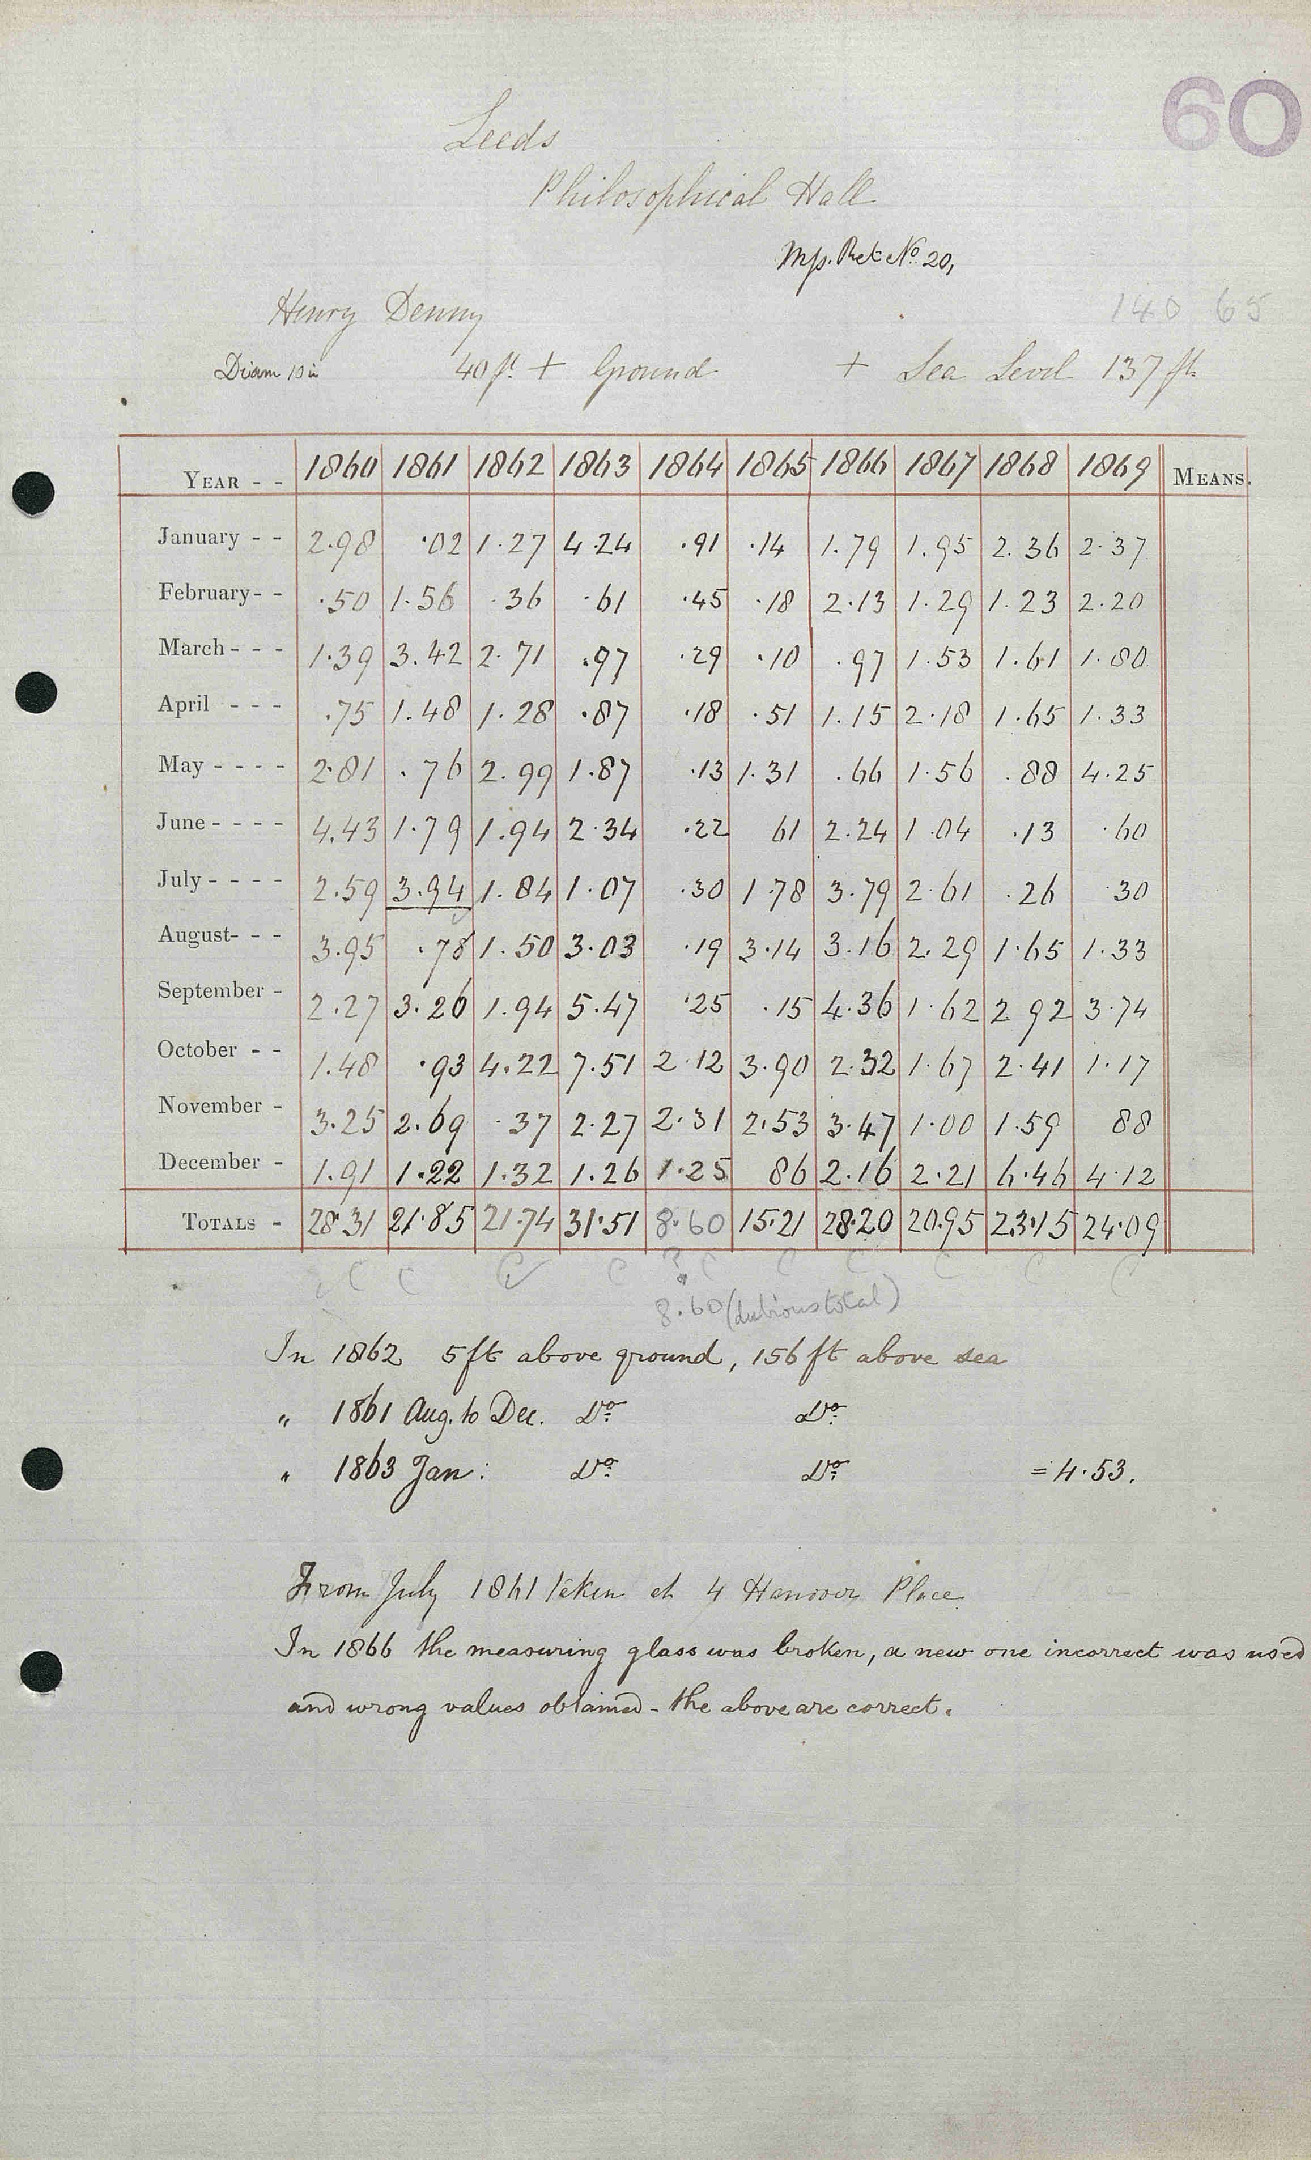 60
Leeds
Philosophical Hall
Nº 20,
Henry Denny
140 65
Diam 10 in 40 ft + Ground + Sea Level 137 ft.
YEAR - - 1860 1861 1862 1863 1864 1865 1866 1867 1868 1869 MEANS.
January - - 2.98 .02 1.27 4.24 .91 .14 1.79 1.95 2.36 2.37
February - - .50 1.56 .36 .61 .45 .18 2.13 1.29 1.23 2.20
March - - - 1.39 3.42 2.71 .97 .29 .10 .97 1.53 1.61 1.80
April - - - .75 1.48 1.28 .87 .18 .51 1.15 2.18 1.65 1.33
May - - - - 2.81 .76 2.99 1.87 .13 1.31 .66 1.56 .88 4.25
June - - - - 4.43 1.79 1.94 2.34 .22 61 2.24 1.04 .13 .60
July - - - - 2.59 3.94 1.84 1.07 .30 1.78 3.79 2.61 .26 30
August - - - 3.95 .78 1.50 3.03 .19 3.14 3.16 2.29 1.65 1.33
September - 2.27 3.26 1.94 5.47 .25 .15 4.36 1.62 2 92 3.74
October - - 1.48 .93 4.22 7.51 2.12 3.90 2.32 1.67 2.41 1.17
November - 3.25 2.69 .37 2.27 2.31 2.53 3.47 1.00 1.59 88
December - 1.91 1.22 1.32 1.26 1.25 86 2.16 2.21 6.46 4.12
TOTALS - 28.31 21.85 21.74 31.51 8.60 15.21 28.20 20.95 23.15 24.09
C C C C ? C C C C C C
8.60 (dubious total)
In 1862 5 ft above ground, 156 ft above sea
" 1861 Aug. to Dec. Dº Dº
" 1863 Jan: Dº Dº = 4.53.
From July 1861 taken at 4 Hanover Place
In 1866 the measuring glass was broken, a new one incorrect was used
and wrong values obtained - the above are correct.